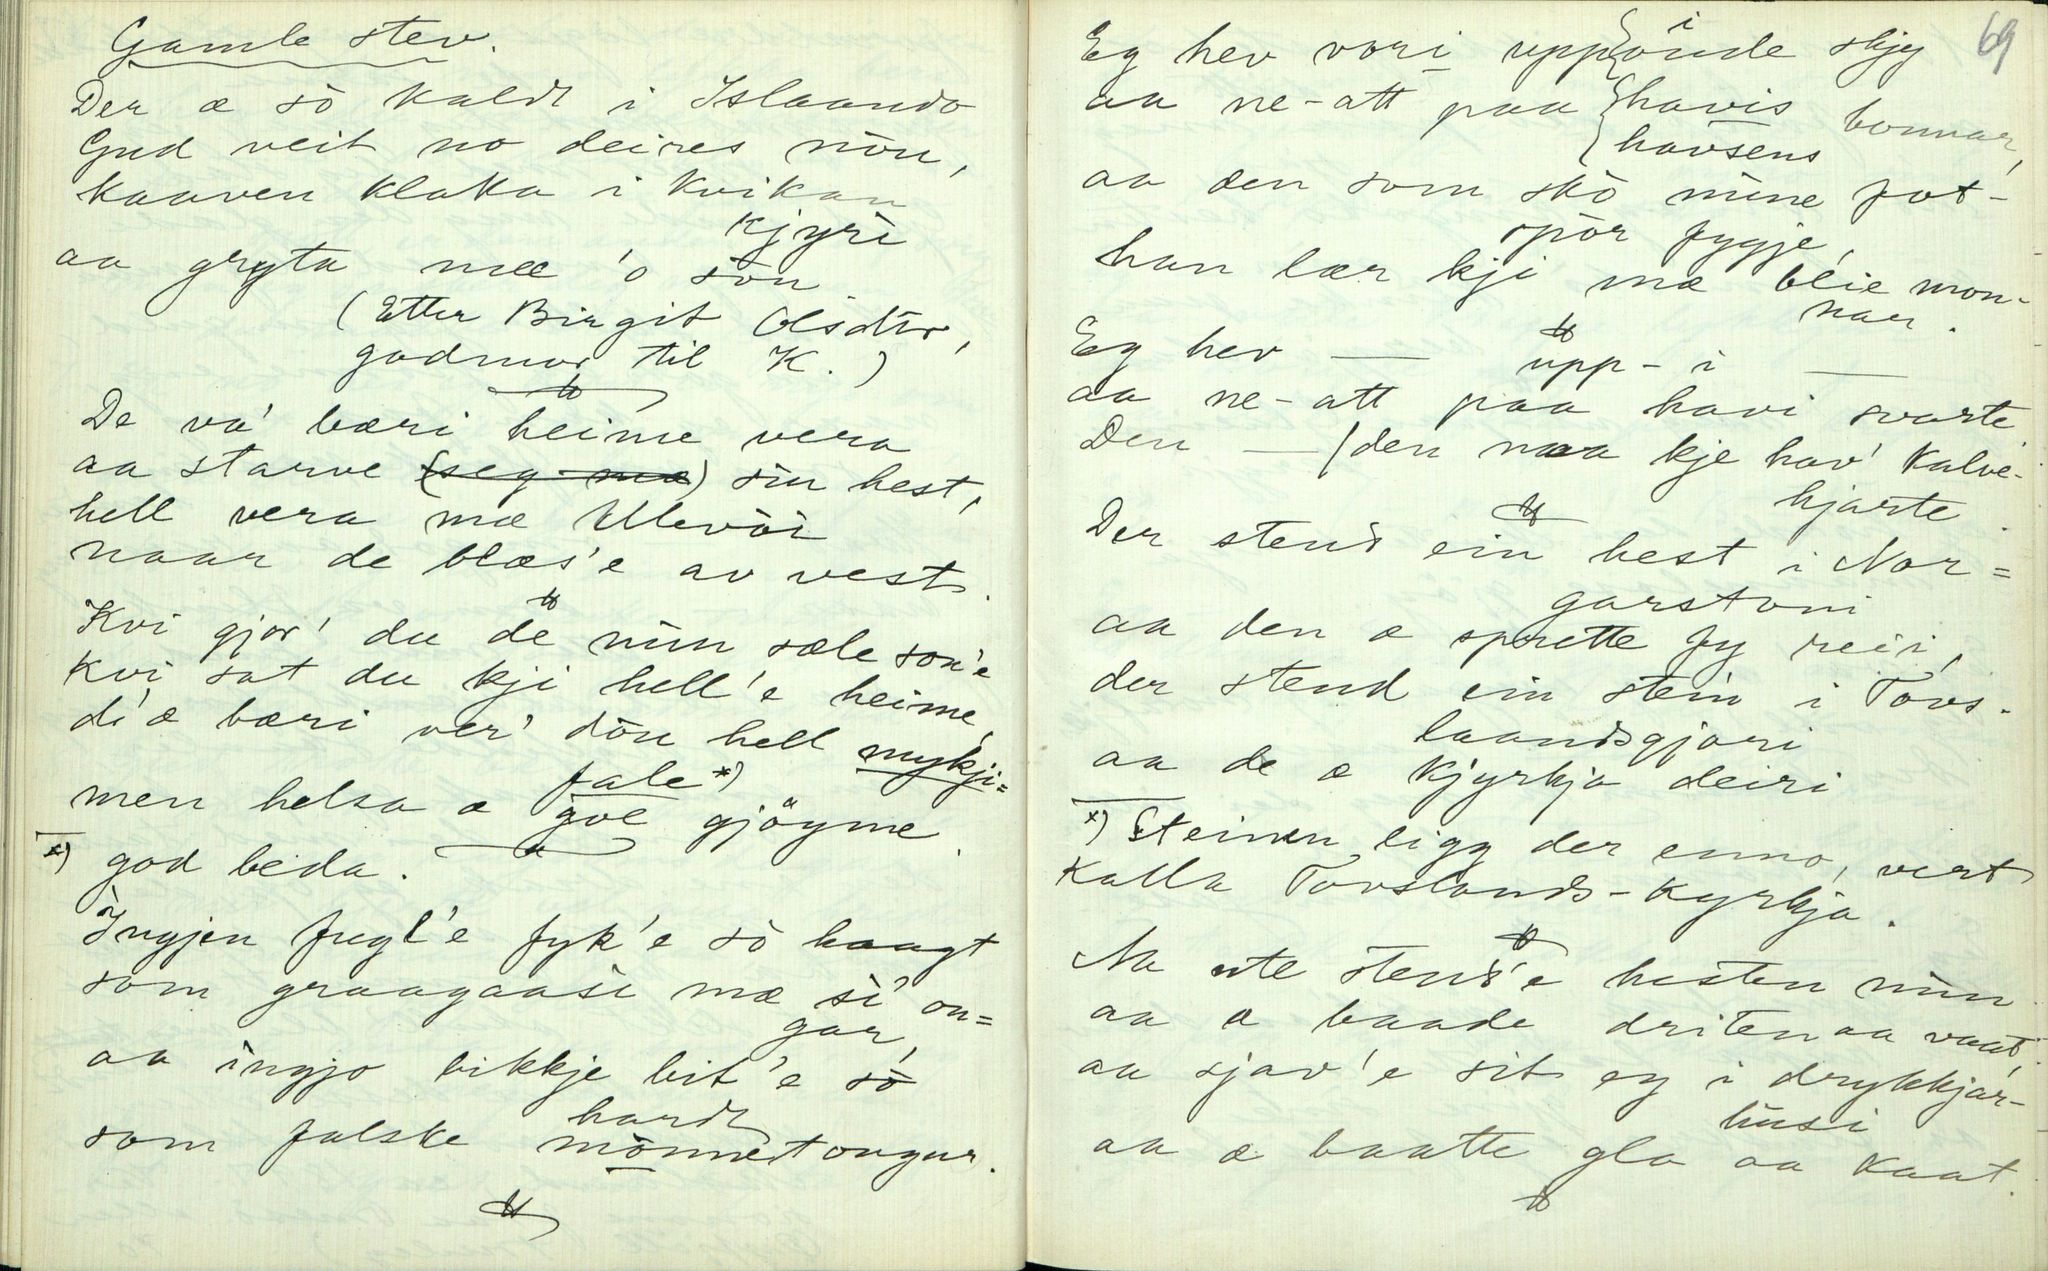 Gamle stev.
Der æ so kaldt i Islaando
Gud veit no deires nòu,
kaaven klaka i kvikan
kjyri
aa gryta mæ 'o sòu
(Etter Birgit Olsdtr,
godmor til K.)
De va' bæri heime vera
aa starve (seg mæ) sin hest,
hell vera mæ Ullevòi
naar de blæs'e av vest.
Kvi gjor' du de min sæle son'e
kvi sat du kji hell'e heime,
di'æ bæri ver' dòu hell mykji=
fale *)
men helsa æ goe gjöyme.
*) god beda.
Ingjen fugl'e fyk'e sò haagt
som graagaasi mæ si' on=
gar,
aa ingjo bikkje bit'e sò
hardt
som falske mònnetongur.
69
Eg hev vori upp i önde skjy
aa ne-att paa havis bonnar,
havsens
aa den som skò mine fot-
spòr fygje,
han lær kji mæ blie mon-
nar.
Eg hev — upp-i —
aa ne-att paa havi svarte
Den — (den maa kje hav' kalve-
hjarte.
Der stend ein hest i Nor=
garstoni
aa den æ sprette fy reii,
der stend ein stein i Tovs-
laandsgjori
aa de æ kjyrkja deiri
*) Steinen ligg der enno, vert
kalla Tovslands-kyrkja.
Na ute stend'e hesten min
aa æ baade driten aa vaat,
aa sjav'e sit eg i drykkjar-
husi
aa æ baatte gla aa kaat.